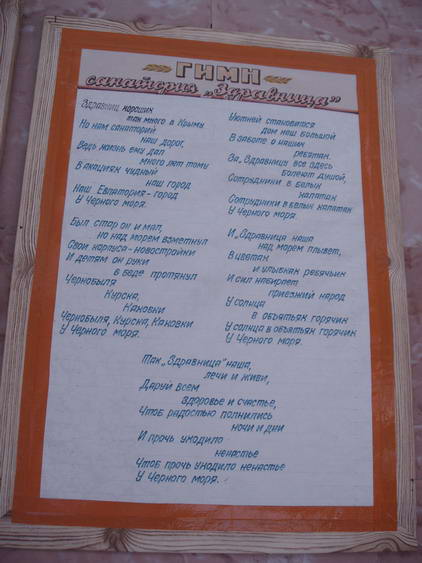 ГИМН
санатория „Здравница”
Здравниц хороших
так много в Крыму
Но нам санаторий
наш дорог,
Ведь жизнь ему дал
много лет тому
В акациях чудный
наш город
Наш Евпатория-город
У Черного моря.
Был стар он и мал,
но над морем взметнул
Свои корпуса-новостройки
И детям он руки
в беде протянул
Чернобыля
Курска,
Каховки
Чернобыля, Курска, Каховки
У Черного моря.
Уютней становится
дом наш большой
В заботе о наших
ребятах.
За „Здравницу" все здесь
болеют душой,
Сотрудники в белых
халатах
Сотрудники в белых халатах
У Черного моря.
И „Здравница" наша
над морем плывет,
В цветах
и улыбках ребячьих
И сил набирает
приезжий народ
У солнца
в объятьях горячих
У солнца в объятьях горячих
У Черного моря.
Так „Здравница" наша,
лечи и живи,
Даруй всем
здоровье и счастье,
Чтоб радостью полнились
ночи и дни
И прочь уходило
ненастье
Чтоб прочь уходило ненастье
У Черного моря.